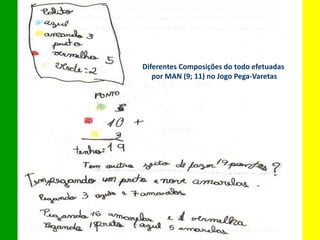 Palito
azul
amarelo 3
preto
vermelho 5
verde=2
Diferentes Composições do todo efetuadas
por MAN (9; 11) no Jogo Pega-Varetas
PONTO
5
10 +
tenho:19
Tem outro jeito de fazer 19 pontos?
um preto e nove amarelos.
Pegando 3 azuis e 7 amarelos
Pegando 16 amarelos e 1 vermelha
1 preto 1 azul 5 amarelos